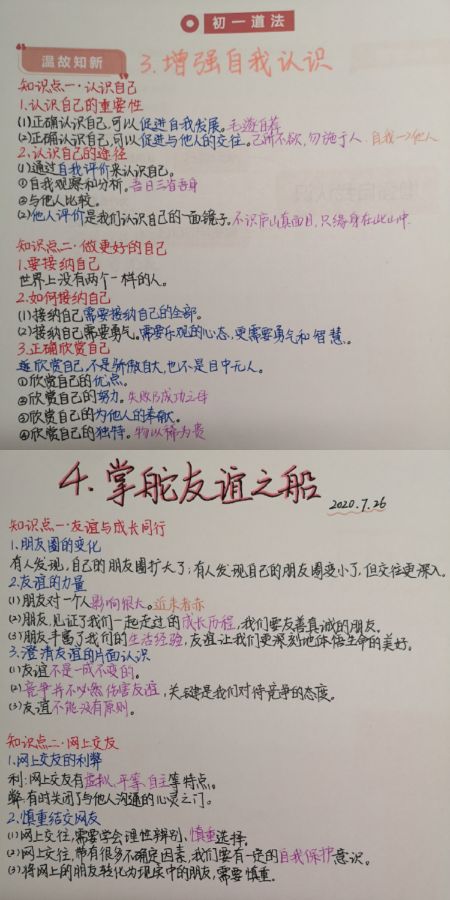 初一道法
温故知新
3.增强自我认识
知识点一·认识自己
1.认识自己的重要性
(1)正确认识自己,可以促进自我发展。毛遂自荐
(2)正确认识自己,可以促进与他人的交往。己所不欲,勿施于人 自我→他人
2.认识自己的途径
(1)通过自我评价来认识自己。
①自我观察和分析。吾日三省吾身
②与他人比较。
(2)他人评价是我们认识自己的一面镜子。不识庐山真面目,只缘身在此山中
知识点二·做更好的自己
1.要接纳自己
世界上没有两个一样的人。
2.如何接纳自己
(1)接纳自己需要接纳自己的全部。
(2)接纳自己需要勇气。需要乐观的心态,更需要勇气和智慧。
3.正确欣赏自己
欣赏自己,不是骄傲自大,也不是目中无人。
①欣赏自己的优点。
②欣赏自己的努力。失败乃成功之母
③欣赏自己的为他人的奉献。
④欣赏自己的独特。物以稀为贵
4.掌舵友谊之船
2020.7.26
知识点一·友谊与成长同行
1.朋友圈的变化
有人发现,自己的朋友圈扩大了;有人发现自己的朋友圈变小了,但交往更深入。
2.友谊的力量
(1)朋友对一个人影响很大。近朱者赤
(2)朋友,见证了我们一起走过的成长历程,我们要友善真诚的朋友。
(3)朋友丰富了我们的生活经验,友谊让我们更深刻地体悟生命的美好。
3.澄清友谊的片面认识
(1)友谊不是一成不变的。
(2)竞争并不必然伤害友谊,关键是我们对待竞争的态度。
(3)友谊不能没有原则。
知识点二·网上交友
1.网上交友的利弊
利:网上交友有虚拟、平等、自主等特点。
弊:有时关闭了与他人沟通的心灵之门。
2.慎重结交网友
(1)网上交往,需要学会理性辨别、慎重选择。
(2)网上交往,带有很多不确定因素,我们要有一定的自我保护意识。
(3)将网上的朋友转化为现实中的朋友,需要慎重.